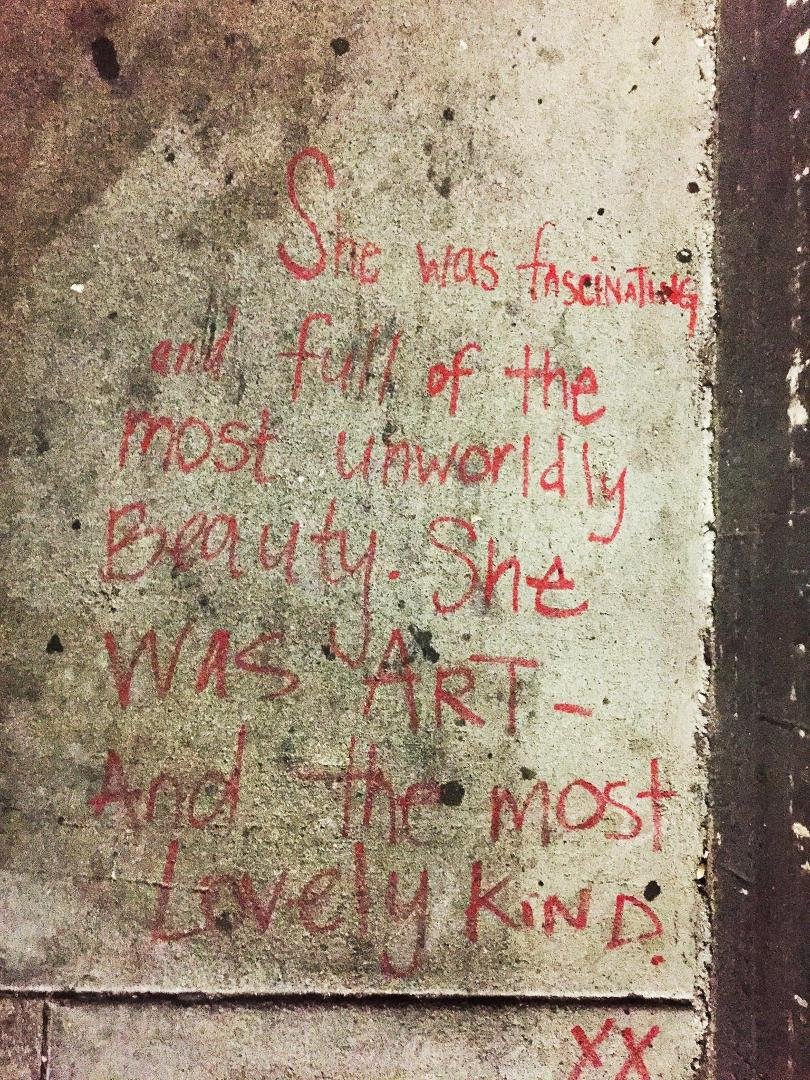 She was fASCiNATiNG
and full of the
most unworldly
Beauty. She
WAS ART-
And the most
Lovely KiND.
XX